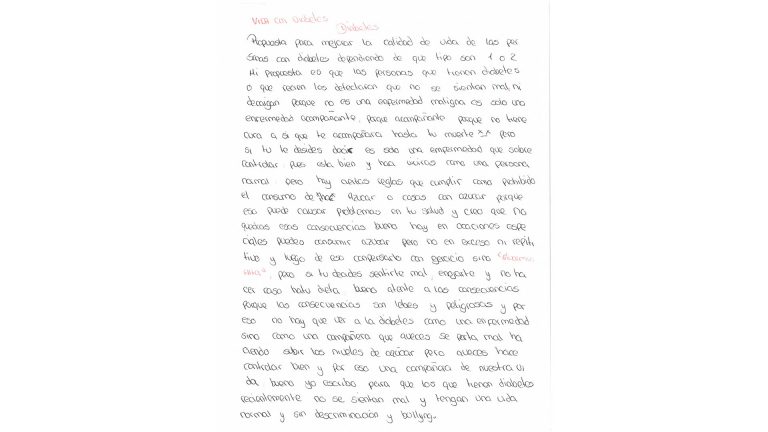 Vivir con Diabetes
Diabetes
Propuesta para mejorar la calidad de vida de las per
sonas con diabetes dependiendo de que tipo son 1 o 2
Mi propuesta es que las personas que tienen diabetes
o que recien los detectaron que no se sientan mal ni
decaigan porque no es una enfermedad maligna es solo una
enfermedad acompañante, porque acompañante porque no tiene
cura a si que te acompañara hasta tu muerte pero
si tu te desides decir es solo una empermedad que sobre
controlar pues esta bien y haci viviras como una persona
normal pero hay ciertas reglas que cumplir como prohibido
el consumo de azucar o cosas con azucar porque
eso puede causar problemas en tu salud y creo que no
quedras esas consecuencias bueno hay en ocaciones espe
ciales puedes consumir azucar pero no en exceso ni repiti
tivo y luego de eso compensarlo con ejercicio sino
pero si tu decides sentirte mal enojarte y no ha
cer caso hatu dieta bueno atente a las consecuencias
porque las consecuencias son lebes y peligrosas y por
eso no hay que ver a la diabetes como una enfermedad
sino como una compañera que aveces se porta mal ha
ciendo subir los niveles de azúcar pero aveces hace
controlar bien y por eso una compañera de nuestra vi
da, bueno yo escribo para que los que tienen diabetes
recientemente no se sientan mal y tengan una vida
normal y sin descriminación y bullying.